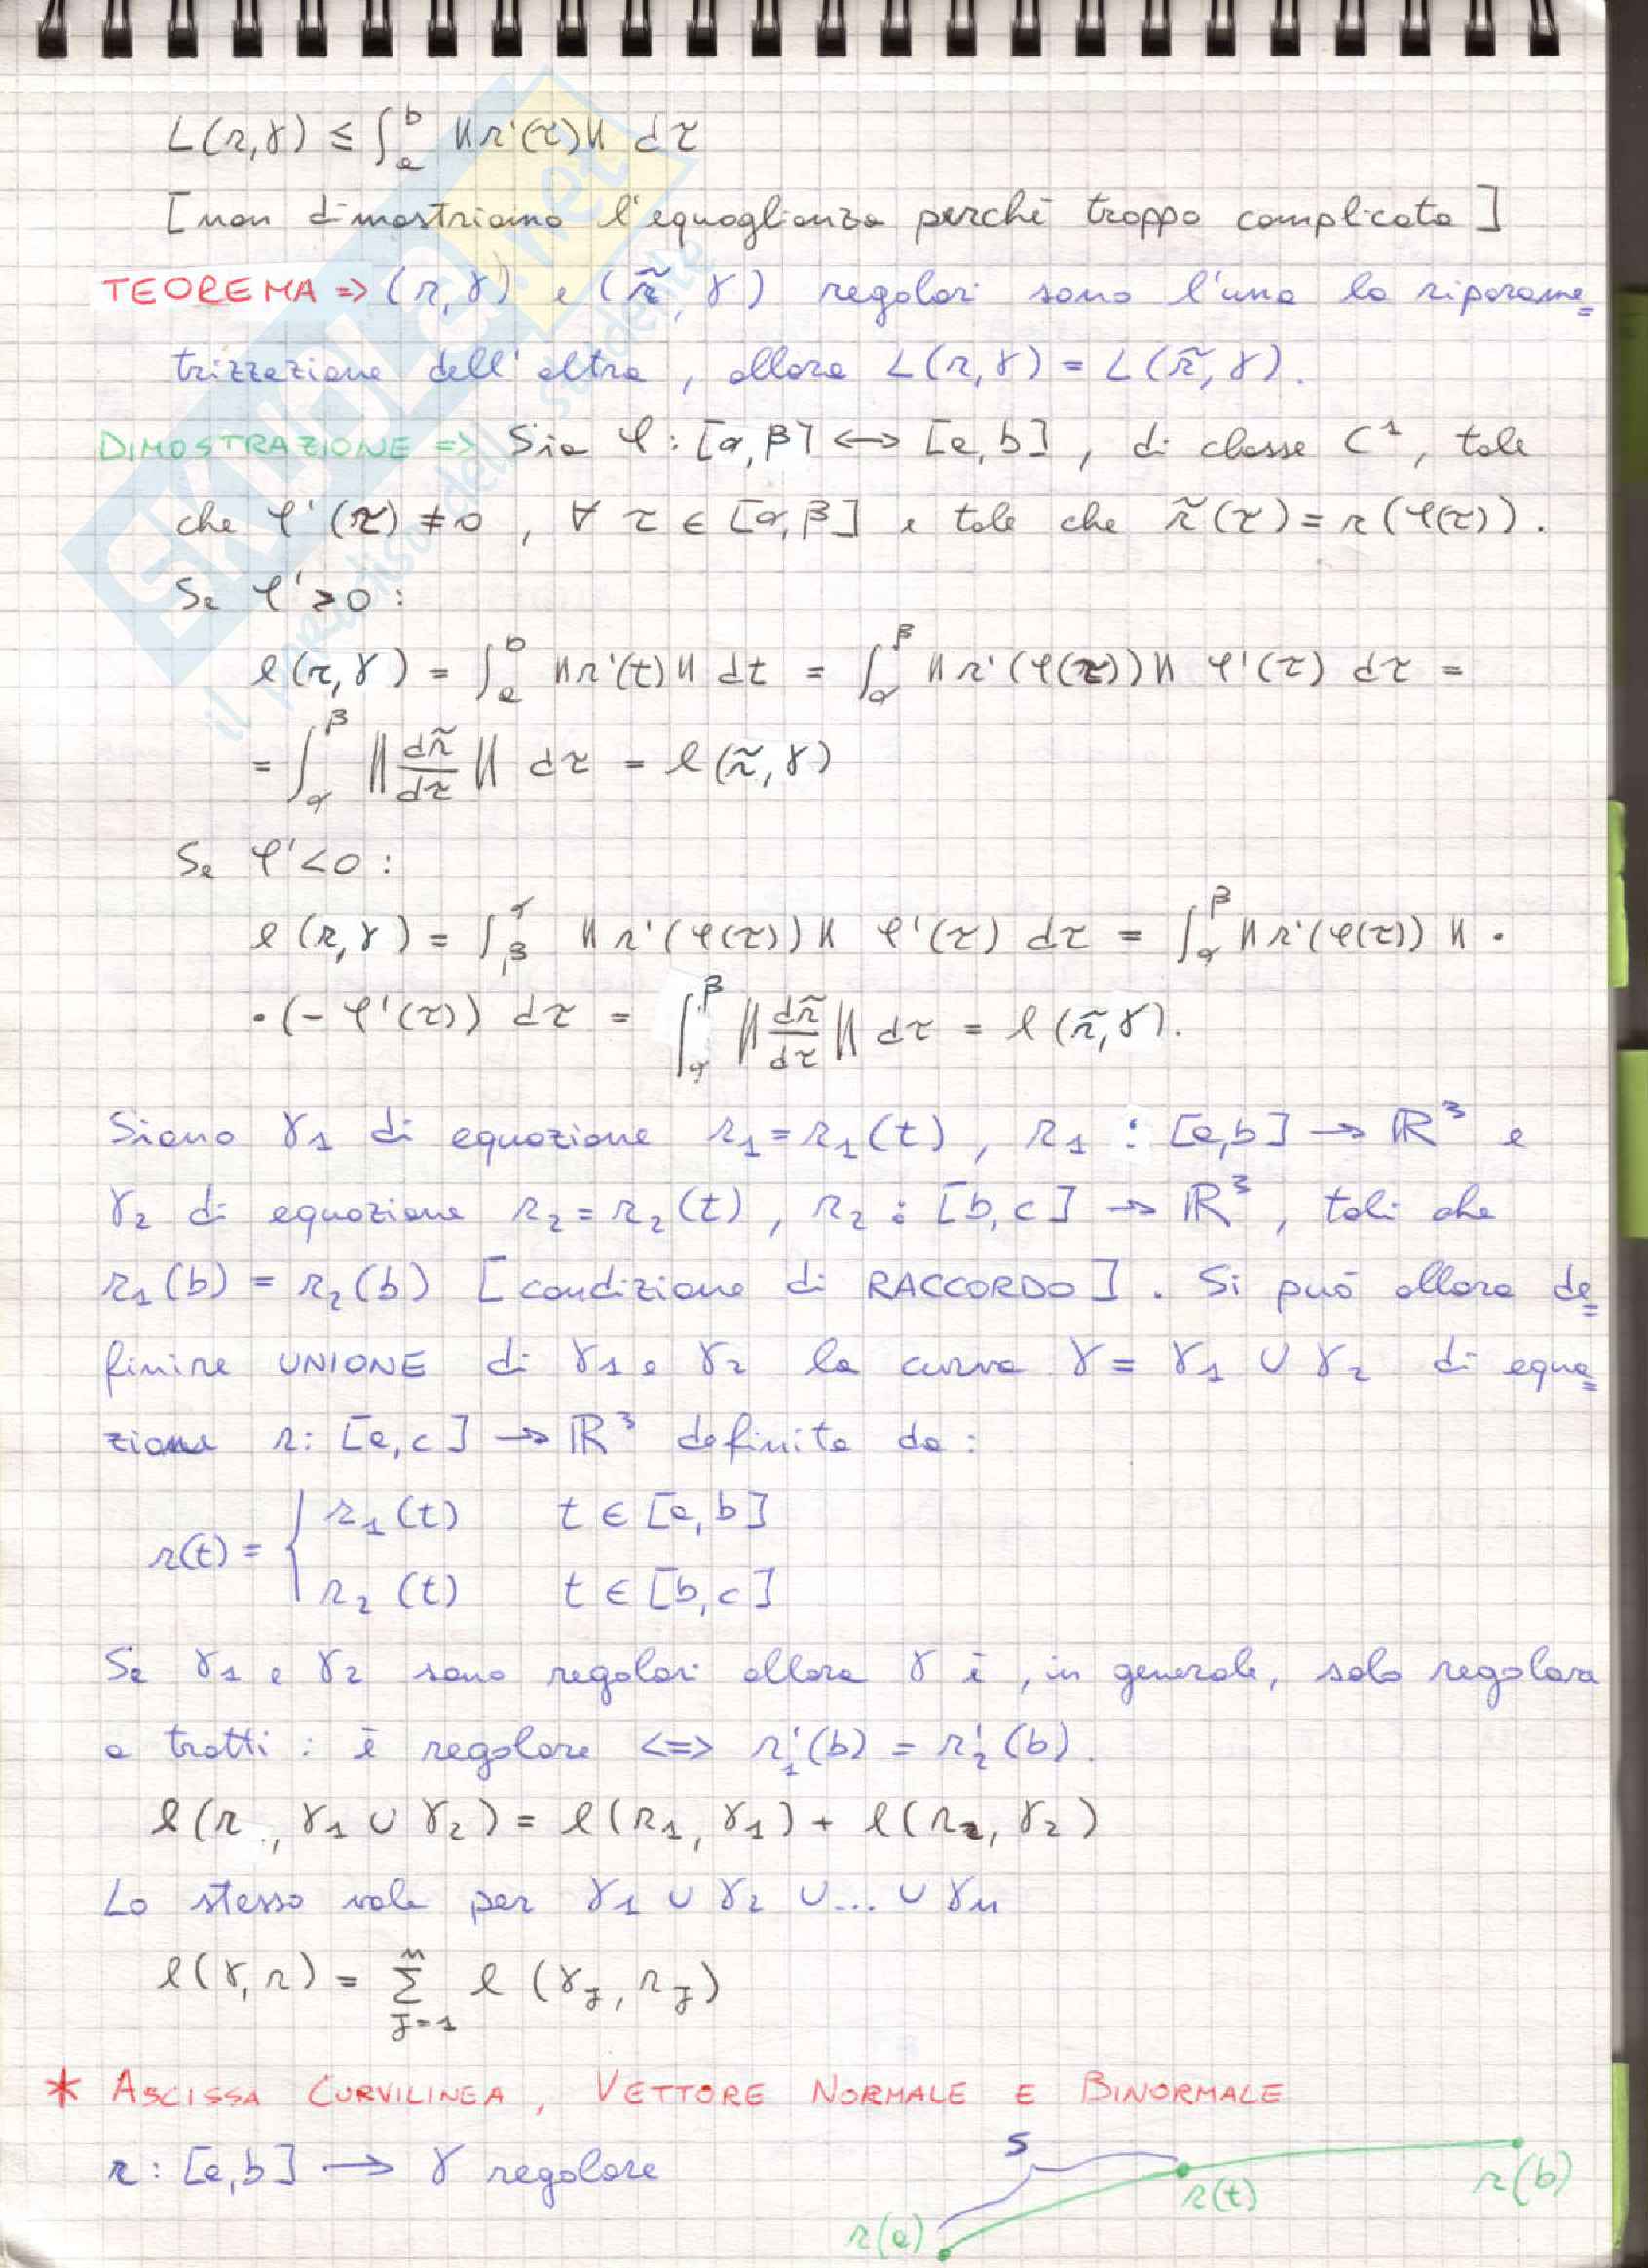 L(r,γ) ≤ ∫_a^b ‖r'(τ)‖ dτ
[non dimostriamo l'eguaglianza perchè troppo complicata]
TEOREMA => (r,γ) e (r̃,γ) regolari sono l'una la riparame=
trizzazione dell'altra, allora L(r,γ) = L(r̃,γ).
DIMOSTRAZIONE => Sia φ: [α,β] <-> [a,b], di classe C¹, tale
che φ'(τ) ≠ 0, ∀ τ ∈ [α,β] e tale che r̃(τ) = r(φ(τ)).
Se φ' > 0 :
l(r,γ) = ∫_a^b ‖r'(t)‖ dt = ∫_α^β ‖r'(φ(τ))‖ φ'(τ) dτ =
= ∫_α^β ‖dr̃/dτ‖ dτ = l(r̃,γ)
Se φ' < 0 :
l(r,γ) = ∫_β^α ‖r'(φ(τ))‖ φ'(τ) dτ = ∫_α^β ‖r'(φ(τ))‖ ·
· (-φ'(τ)) dτ = ∫_α^β ‖dr̃/dτ‖ dτ = l(r̃,γ).
Siano γ₁ di equazione r₁ = r₁(t), r₁ : [a,b] -> ℝ³ e
γ₂ di equazione r₂ = r₂(t), r₂ : [b,c] -> ℝ³, tali che
r₁(b) = r₂(b) [condizione di RACCORDO]. Si può allora de=
finire UNIONE di γ₁ e γ₂ la curva γ = γ₁ ∪ γ₂ di equa=
zione r: [a,c] -> ℝ³ definita da :
r(t) = { r₁(t) t ∈ [a,b]
r₂(t) t ∈ [b,c]
Se γ₁ e γ₂ sono regolari allora γ è, in generale, solo regolare
a tratti : è regolare <=> r₁'(b) = r₂'(b).
l(r, γ₁ ∪ γ₂) = l(r₁,γ₁) + l(r₂,γ₂)
Lo stesso vale per γ₁ ∪ γ₂ ∪ ... ∪ γn
l(γ,r) = Σ_{J=1}^n l(γ_J, r_J)
* ASCISSA CURVILINEA, VETTORE NORMALE E BINORMALE
r : [a,b] -> γ regolare
s
r(a)
r(t)
r(b)
SKUOLA.net
il paradiso dello studente